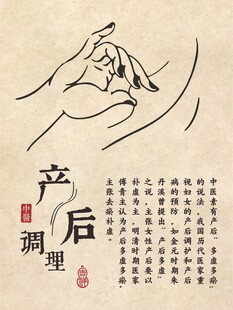 产后
调理
中醫
中医素有产后“多虚多瘀”
的说法，我国历代医家重
视妇女的产后调护和产后
病的预防，如金元时期朱
丹溪曾提出“产后多虚”
之说，主张女性产后要以
补虚为主，明清时期医家
傅青主认为产后多虚多瘀，
主张去瘀补虚。